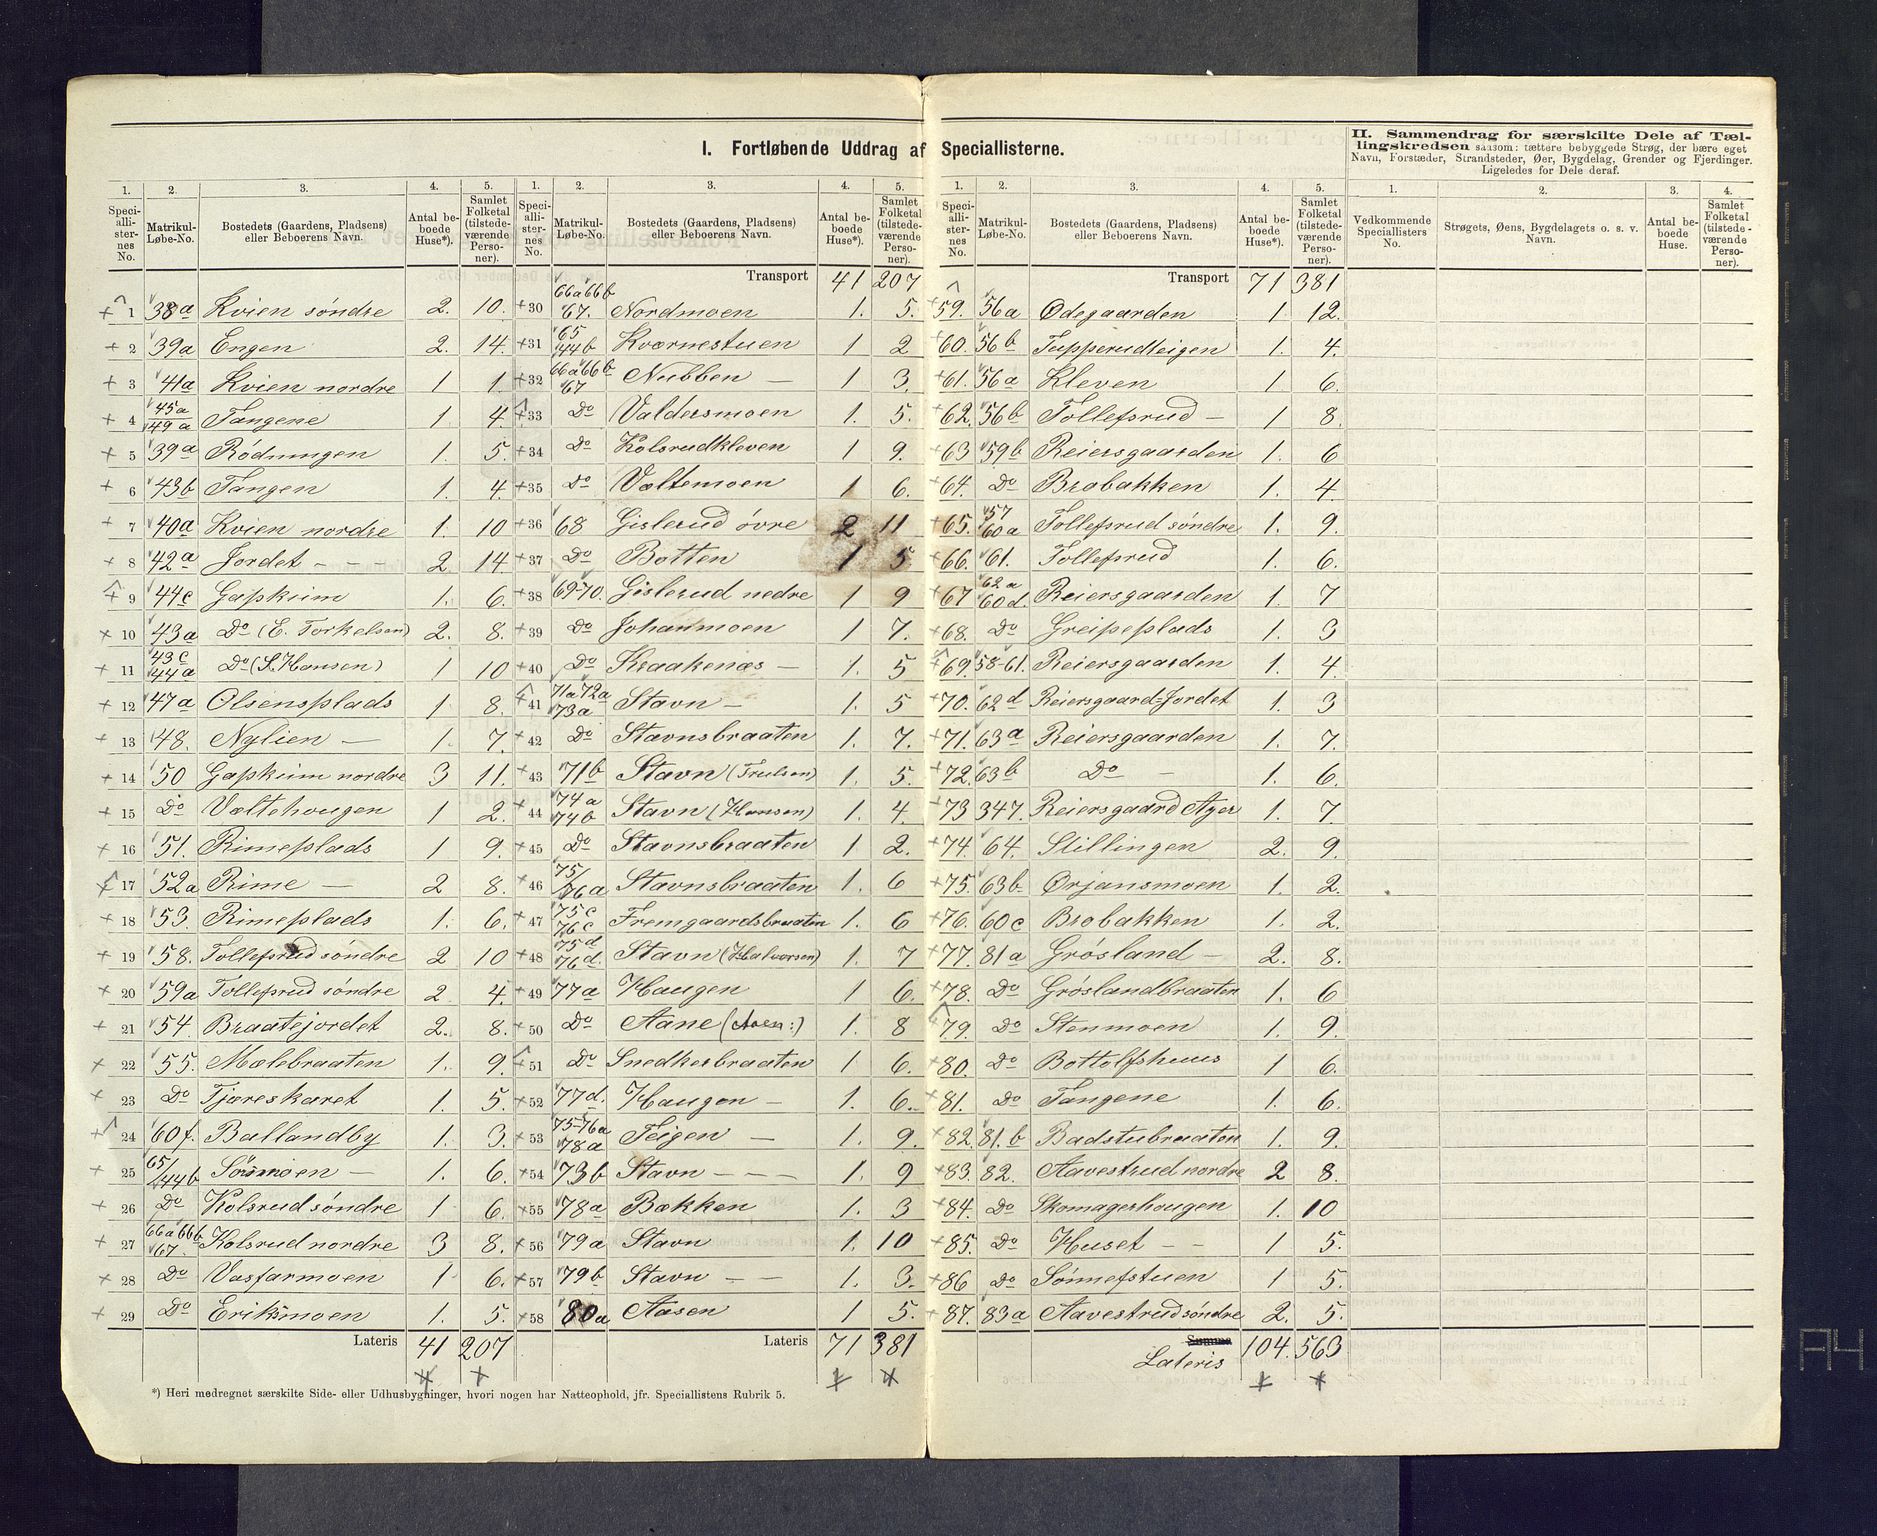 I. Fortløbende Uddrag af Speciallisterne.
II. Sammendrag for særskilte Dele af Tæl-
lingskredsen saasom: tættere bebyggede Strøg, der bære eget
Navn, Forstæder, Strandsteder, Øer, Bygdelag, Grender og Fjerdinger.
Ligeledes for Dele deraf.
1. 2. 3. 4. 5.
Speciallisternes No. Matrikul-Løbe-No. Bostedets (Gaardens, Pladsens) eller Beboerens Navn. Antal beboede Huse*). Samlet Folketal (tilstedeværende Personer).
+ 1 38a Kvien søndre 2. 10.
+ 2 39a Engen 2. 14.
+ 3 41a Kvien nordre 1 1.
+ 4 45a 49a Tangene 1 4.
+ 5 39a Rødningen 1. 5.
+ 6 43b Tangen 1. 4.
+ 7 40a Kvien nordre 1. 10
+ 8 42a Jordet - - - 2. 14.
+ 9 44c Gapkuim 1. 6.
+ 10 43a Do (E. Torkelsen) 2. 8.
+ 11 43c 44a Do (S. Hansen) 1 10
+ 12 47a Olsensplads 1 8.
+ 13 48. Nylien — 1. 7.
+ 14 50 Gapkuim nordre 3 11.
+ 15 Do Væltehougen 1 2.
+ 16 51. Rimeplads 1 9.
+ 17 52a Rime — 2 8.
+ 18 53. Rimeplads 1. 6.
+ 19 58. Tollefsrud søndre 2 10
+ 20 59a Tollefsrud søndre 2 4.
+ 21 54. Braatejordet 2. 8.
+ 22 55. Mælebraaten 1. 9.
+ 23 Do Tjæreskaret 1. 5.
+ 24 60f. Ballandby 1. 3.
+ 25 65/44b Sørmoen — 1. 6.
+ 26 Do Kolsrud søndre 1 6.
+ 27 66a 66b 67. Kolsrud nordre 3 8.
+ 28 Do Vasfarmoen 1 6.
+ 29 Do Eriksmoen 1. 5.
Lateris 41 207
1. 2. 3. 4. 5.
Speciallisternes No. Matrikul-Løbe-No. Bostedets (Gaardens, Pladsens) eller Beboerens Navn. Antal beboede Huse*). Samlet Folketal (tilstedeværende Personer).
Transport 41 207
+30 66a 66b 67. Nordmoen 1. 5.
+31 65 44b Kværnestuen 1 2
+32 66a 66b 67 Nubben — 1 3.
+33 Do Valdersmoen 1. 5.
+34 Do Kolsrudkleven 1 9.
+35 Do Væltemoen 1 6.
+36 68 Gislerud øvre 2 11
+37 Do Botten 1 5
+38 69-70. Gislerud nedre 1 9
+39 Do Johanmoen 1 7.
+40 Do Kraakenæs — 1. 5
+41 71a 72a 73a Stavn — 1. 5
+42 Do Stavnsbraaten 1. 7.
+43 71b Stavn (Trulsen) 1. 5.
+44 74a 74b Stavn (Hansen) 1. 4.
+45 Do Stavnsbraaten 1 2.
+46 75/76a Stavnsbraaten 1. 6
+47 75c 76c Fremgaardsbraaten 1. 6
+48 75d 76d Stavn (Halvorsen) 1. 7
+49 77a Haugen 1 6.
+50 Do Aane (Aaen:) 1. 8
+51 Do Snedkerbraaten 1 6.
+52 77d. Haugen — 1. 6.
+53 75-76a 78a Teigen — 1. 9.
+54 73b Stavn - - - 1. 9
+55 78a Bakken 1. 3
+56 79a Stavn 1. 10
+57 79b Stavn - - 1. 3.
+58 80a Aasen 1 5.
Lateris 71 381
1. 2. 3. 4. 5.
Speciallisternes No. Matrikul-Løbe-No. Bostedets (Gaardens, Pladsens) eller Beboerens Navn. Antal beboede Huse*). Samlet Folketal (tilstedeværende Personer).
Transport 71 381
+59. 56a Ødegaarden 1 12.
+60. 56b Tupperudteigen 1. 4.
+61. 56a Kleven 1 6.
+62. 56b Tollefsrud — 1 8.
+63 59b Reiersgaarden 1. 6
+64. Do Brobakken 1. 4
+65. 57 60a Tollefsrud søndre 1. 9.
+66. 61. Tollefsrud 1. 6.
+67 62a 60d. Reiersgaarden 1. 7
+68. Do Greipeplads 1. 3
+69. 58-61. Reiersgaarden 1. 4
+70. 62d Reiersgaard-Jordet 1. 3
+71. 63a Reiersgaarden 1. 7.
+72. 63b Do — 1. 6.
+73 347. Reiersgaard Ager 1. 7
+74. 64. Stillingen 2. 9.
+75. 63b. Ørjansmoen 1. 2.
+76. 60c Brobakken 1. 2.
+77. 81a Grøsland — 2. 8.
+78. Do Grøslandbraaten 1. 6
+79. Do Stenmoen 1. 9.
+80. Do Bottolfshuus 1 6.
+81. Do Tangene 1. 6.
+82. 81.b Badstubraaten 1. 9.
+83. 82. Aavestrud nordre 2 8.
+84. Do Skomagerhougen 1. 10
+85. Do Huset - - 1 5.
+86 Do Sønnefstuen 1 5.
+87. 83a Aavestrud søndre 2. 5.
Summa Lateris 104. 563
1. 2. 3. 4.
Vedkommende Speciallisters No. Strøgets, Øens, Bygdelagets o. s. v. Navn. Antal beboede Huse. Samlet Folketal (tilstedeværende Personer).
*) Heri medregnet særskilte Side- eller Udhusbygninger, hvori nogen har Natteophold, jfr. Speciallistens Rubrik 5.
A4